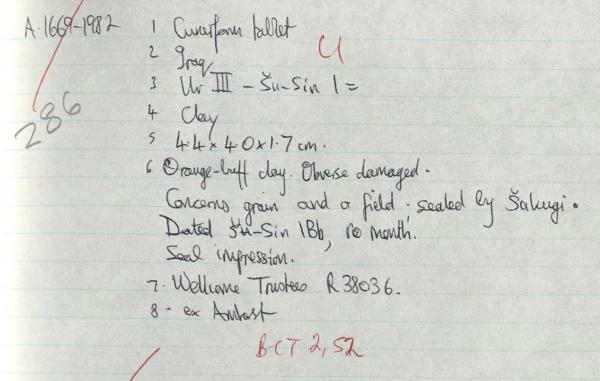 A.1669-1982
1 Cuneiform tablet
U
2 Iraq
3 Ur III - Šu-Sin 1 =
286
4 Clay
5 4.4 x 4.0 x 1.7 cm.
6 Orange-buff clay. Obverse damaged.
Concerns grain and a field; sealed by Šakugi.
Dated Šu-Sin 1Bb, no month.
Seal impression.
7. Wellcome Trustees R38036.
8. ex
BCT 2, 52